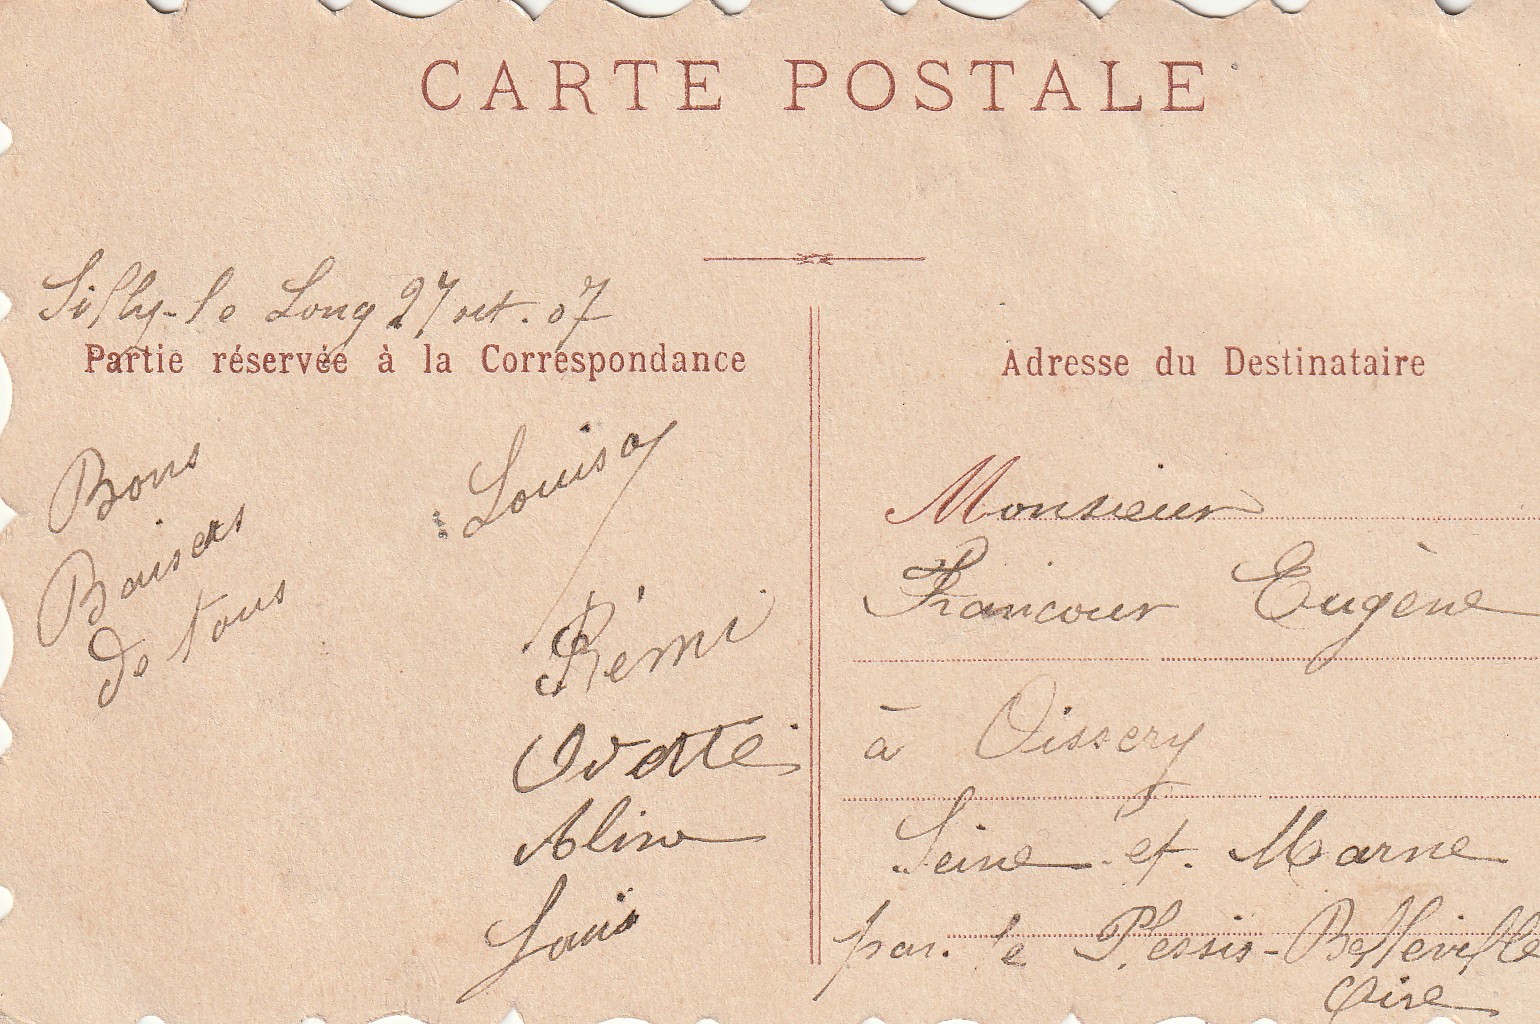 CARTE POSTALE
Silly-le Long 27 oct. 07
Partie réservée à la Correspondance
Bons
Baisers
de tous
Louisa
Rémi
Odette
Aline
Louis
Adresse du Destinataire
Monsieur
Francour Eugène
à Oissery
Seine et Marne
par le Plessis-Belleville
Oise